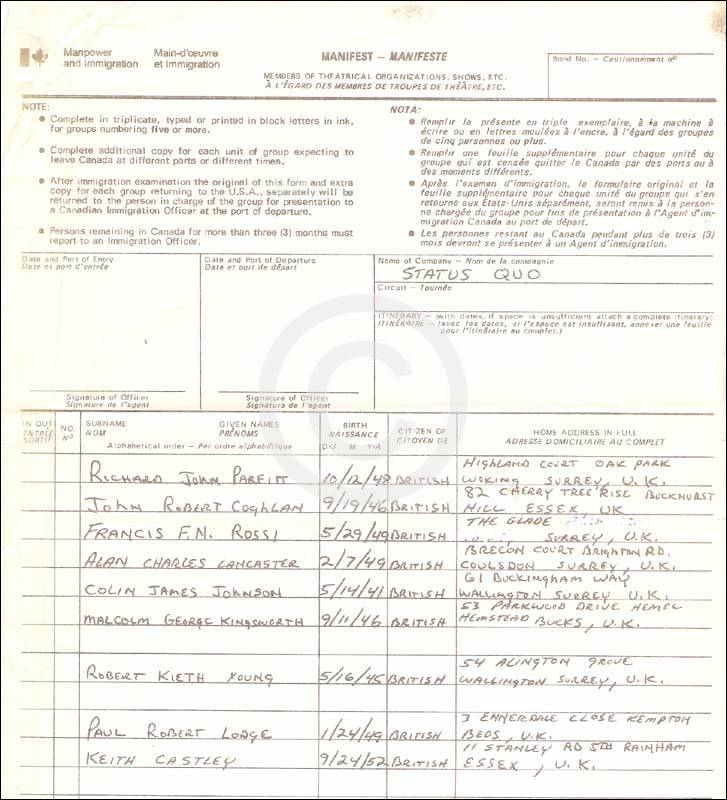 Manpower
and Immigration
Main-d'œuvre
et Immigration
MANIFEST – MANIFESTE
MEMBERS OF THEATRICAL ORGANIZATIONS, SHOWS, ETC.
À L'ÉGARD DES MEMBRES DE TROUPES DE THÉÂTRE, ETC.
Bond No. – Cautionnement nº
NOTE:
● Complete in triplicate, typed or printed in block letters in ink,
for groups numbering five or more.
● Complete additional copy for each unit of group expecting to
leave Canada at different parts or different times.
● After immigration examination the original of this form and extra
copy for each group returning to the U.S.A., separately will be
returned to the person in charge of the group for presentation to
a Canadian Immigration Officer at the port of departure.
● Persons remaining in Canada for more than three (3) months must
report to an Immigration Officer.
NOTA:
● Remplir la présente en triple exemplaire, à la machine à
écrire ou en lettres moulées à l'encre, à l'égard des groupes
de cinq personnes ou plus.
● Remplir une feuille supplémentaire pour chaque unité du
groupe qui est censée quitter le Canada par des ports ou à
des moments différents.
● Après l'examen d'immigration, le formulaire original et la
feuille supplémentaire pour chaque unité du groupe qui s'en
retourne aux États-Unis séparément, seront remis à la person-
ne chargée du groupe pour fins de présentation à l'Agent d'im-
migration Canada au port de départ.
● Les personnes restant au Canada pendant plus de trois (3)
mois devront se présenter à un Agent d'immigration.
Date and Port of Entry
Date et port d'entrée
Date and Port of Departure
Date et port de départ
Name of Company – Nom de la compagnie
STATUS QUO
Circuit – Tournée
ITINERARY – (with dates, if space is unsufficient attach a complete itinerary)
ITINÉRAIRE – (avec les dates, si l'espace est insuffisant, annexer une feuille
pour l'itinéraire au complet.)
Signature of Officer
Signature de l'agent
Signature of Officer
Signature de l'agent
IN OUT
ENTRÉE
SORTIE
NO.
Nº
SURNAME
NOM
GIVEN NAMES
PRÉNOMS
Alphabetical order – Par ordre alphabétique
BIRTH
NAISSANCE
D-J M Y-A
CITIZEN OF
CITOYEN DE
HOME ADDRESS IN FULL
ADRESSE DOMICILIAIRE AU COMPLET
HIGHLAND COURT OAK PARK
RICHARD JOHN PARFITT 10/12/48 BRITISH WOKING SURREY, U.K.
82 CHERRY TREE RISE BUCKHURST
JOHN ROBERT COGHLAN 9/19/46 BRITISH HILL ESSEX, UK
THE GLADE
FRANCIS F.N. ROSSI 5/29/49 BRITISH SURREY, U.K.
BRECON COURT BRIGHTON RD.
ALAN CHARLES LANCASTER 2/7/49 BRITISH COULSDON SURREY, U.K.
61 BUCKINGHAM WAY
COLIN JAMES JOHNSON 5/14/41 BRITISH WALLINGTON SURREY U.K.
53 PARKWOOD DRIVE HEMEL
MALCOLM GEORGE KINGSWORTH 9/11/46 BRITISH HEMSTEAD BUCKS, U.K.
54 ALINGTON GROVE
ROBERT KIETH YOUNG 5/16/45 BRITISH WALLINGTON SURREY, U.K.
3 ENNERDALE CLOSE KEMPTON
PAUL ROBERT LODGE 1/24/49 BRITISH BEDS, U.K.
11 STANLEY RD STH RAINHAM
KEITH CASTLEY 9/24/52 BRITISH ESSEX, U.K.